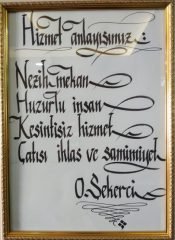 Hizmet anlayışımız:
Nezih mekan
Huzurlu insan
Kesintisiz hizmet
Çatısı ihlas ve samimiyet
O.Şekerci